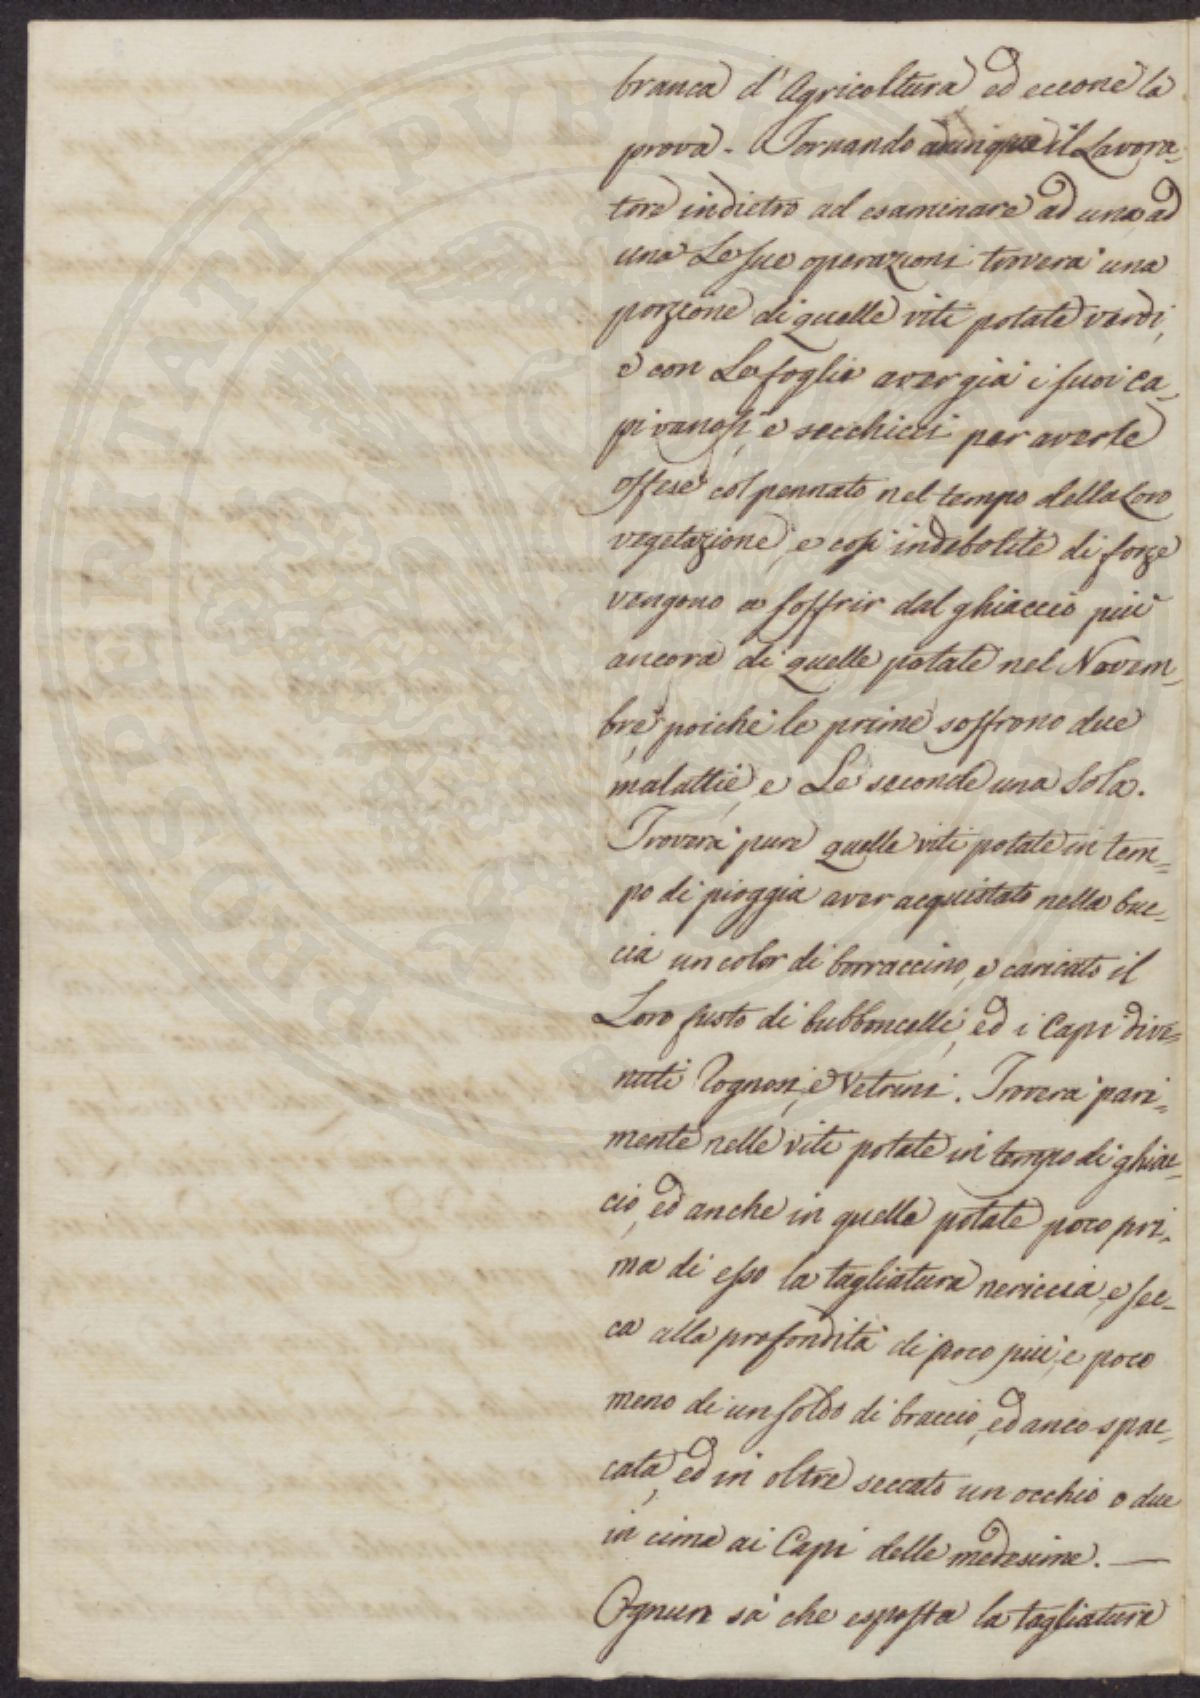 branca d'Agricoltura ed eccone la
prova. Tornando adunque il Lavora-
tore indietro ad esaminare ad una, ad
una Le sue operazioni troverà una
porzione di quelle viti potate verdi,
e con Le foglie aver già i suoi ca-
pi vanosi, e secchicci per averle
offese col pennato nel tempo della Loro
vegetazione, e così indebolite di forze
vengono a soffrir dal ghiaccio più
ancora di quelle potate nel Novem-
bre, poichè le prime soffrono due
malattie, e Le seconde una Sola.
Troverà pure quelle viti potate in tem-
po di pioggia aver acquistato nella buc-
cia un color di borraccino, e caricato il
Loro fusto di bubboncelli, ed i Capi dive-
nuti Rognosi, e Vetrini. Troverà pari-
mente nelle viti potate in tempo di ghiac-
cio, ed anche in quelle potate poco pri-
ma di esso la tagliatura nericcia, e sec-
ca alla profondità di poco più, e poco
meno di un soldo di braccio, ed anco spac-
cata, ed in oltre seccato un occhio o due
in cima ai Capi delle medesime. —
Ognun sà che esposta la tagliatura
PROSPERITATI PVBLICAE